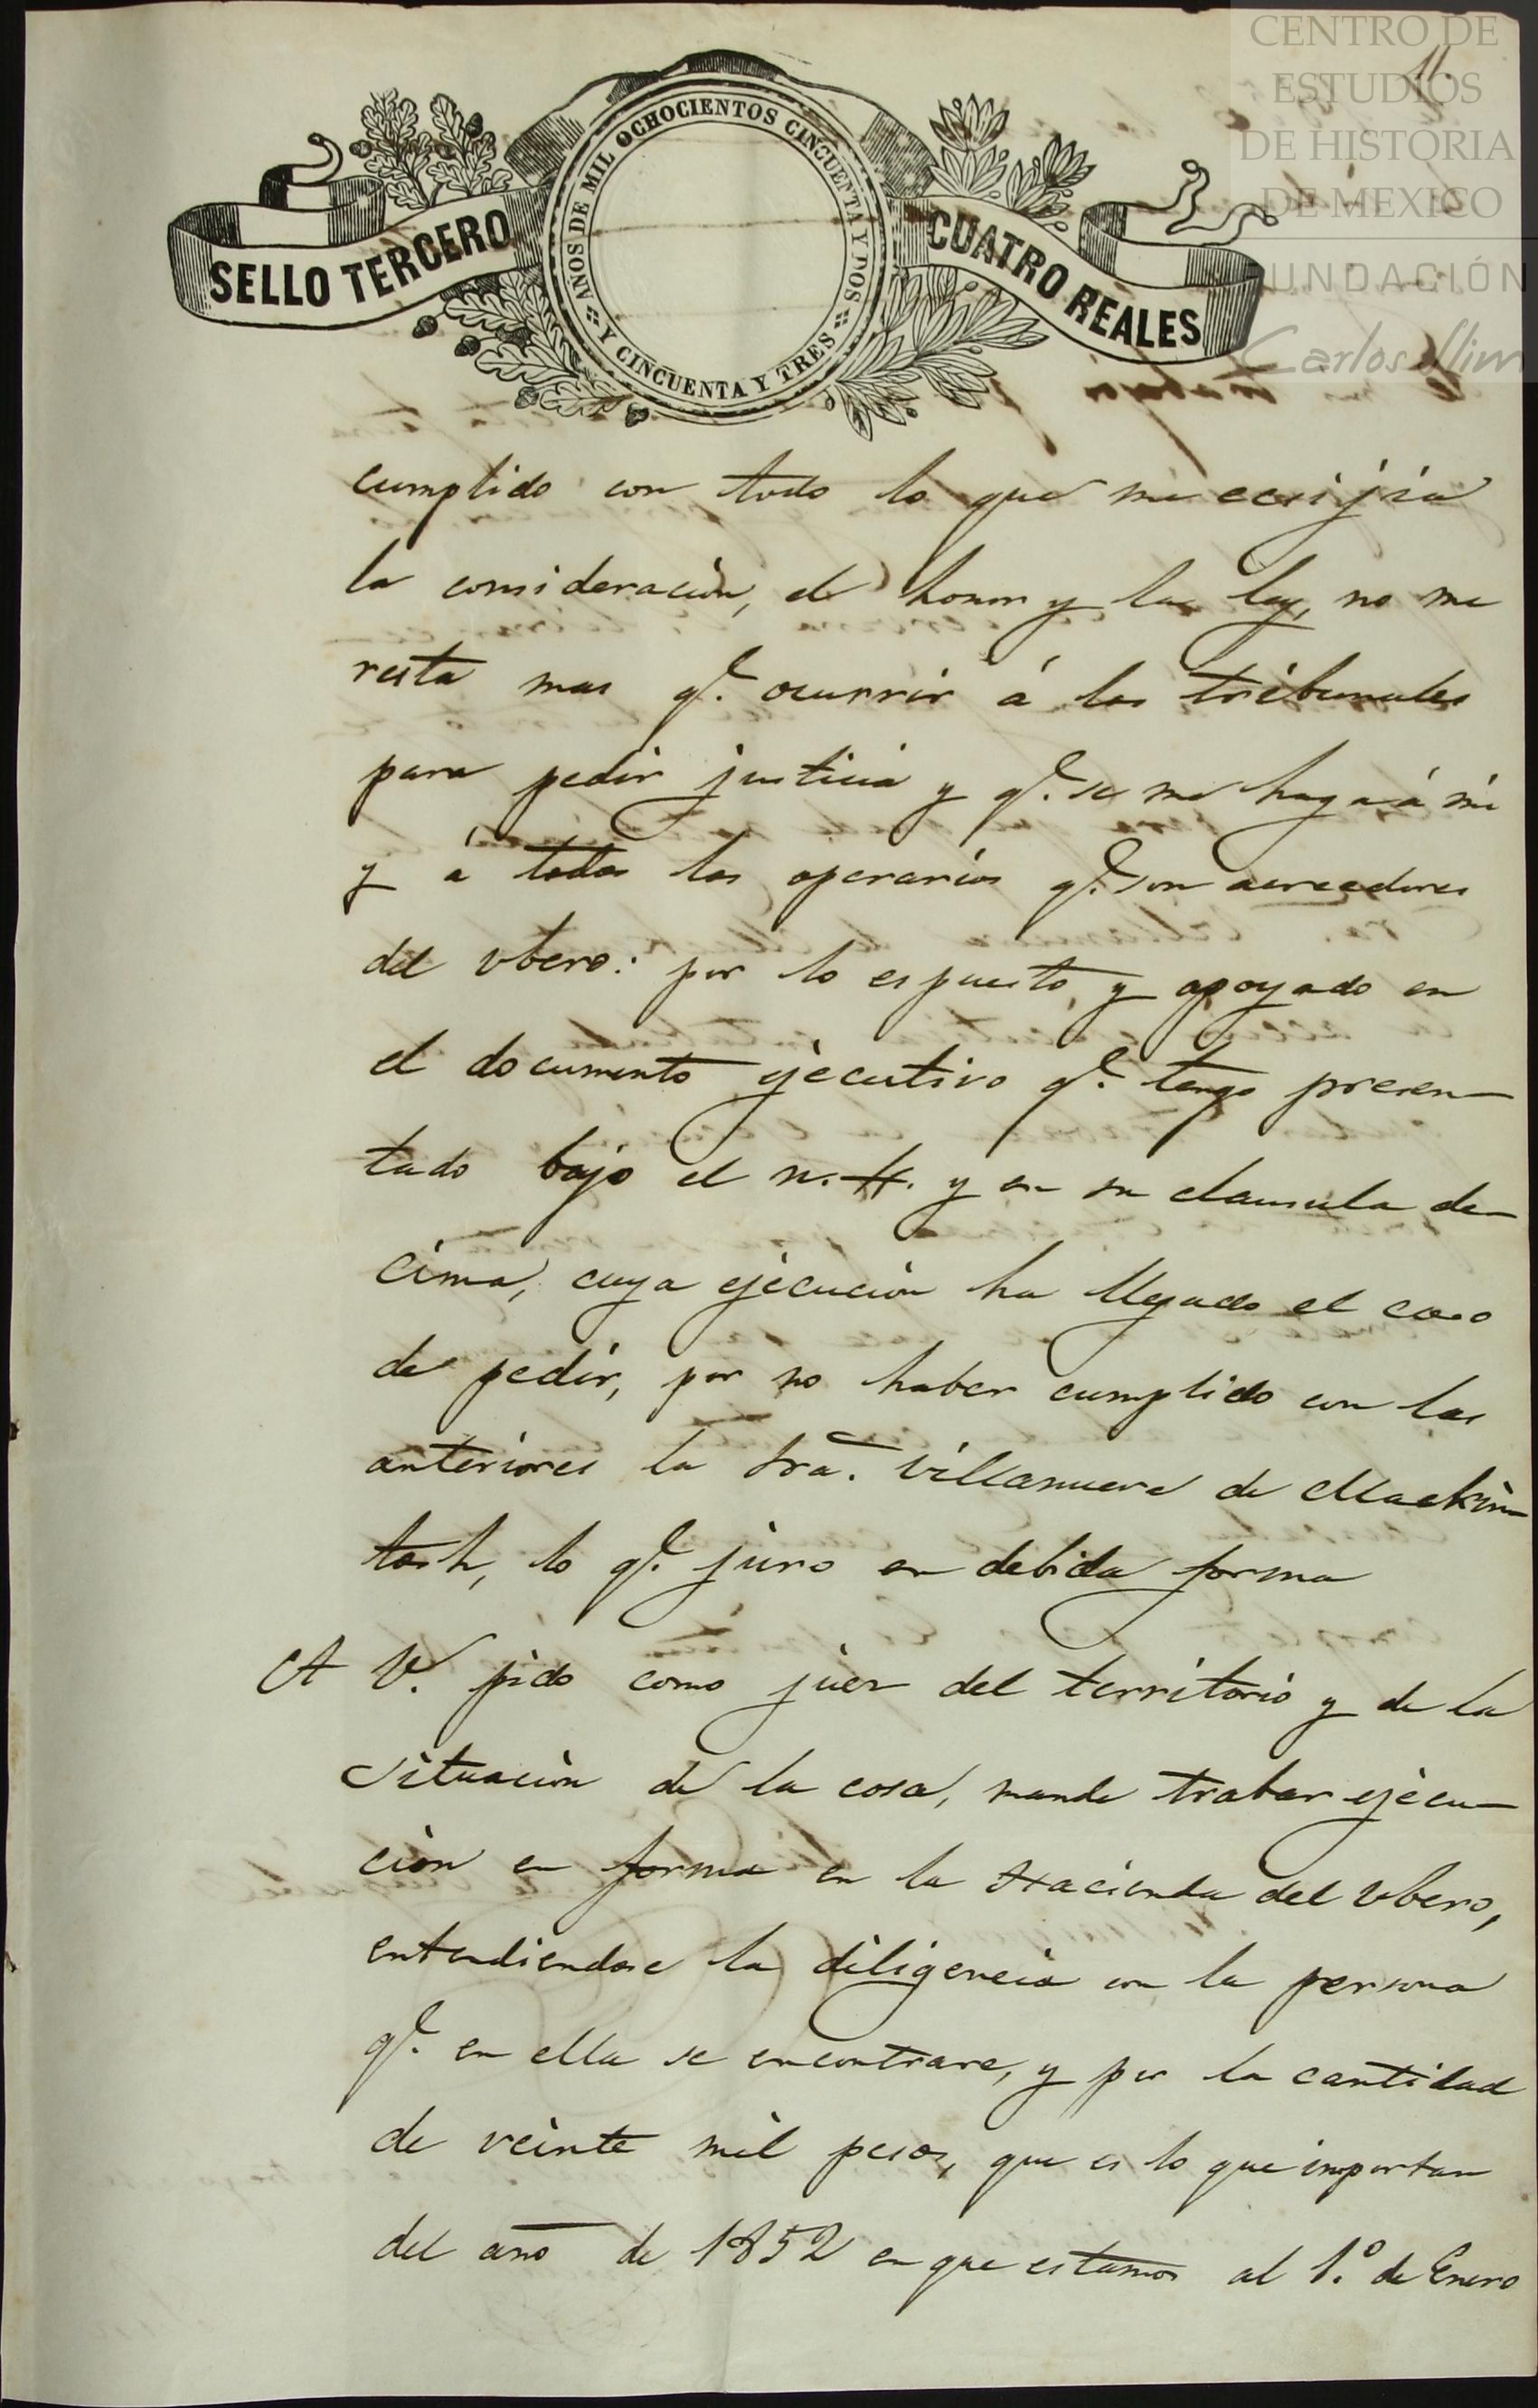 CENTRO DE
ESTUDIOS
DE HISTORIA
DE MEXICO
FUNDACIÓN
Carlos Slim
11.
SELLO TERCERO
AÑOS DE MIL OCHOCIENTOS CINCUENTA Y DOS
Y CINCUENTA Y TRES
CUATRO REALES
cumplido con todo lo que me ecsijia
la consideración, el honor y la ley, no me
resta mas q.e ocurrir á los tribunales
para pedir justicia y q.e se me haga á mi
y á todos los operarios q.e son acreedores
del Ubero: por lo espuesto, y apoyado en
el documento ejecutivo q.e tengo presen-
tado bajo el n. 4. y en su clausula de-
cima, cuya ejecucion ha llegado el caso
de pedir, por no haber cumplido con las
anteriores la Sra. Villanueva de Mackin-
tosh, lo q.e juro en debida forma
A V. pido como juez del territorio y de la
situación de la cosa, mande trabar ejecu-
cion en forma en la Hacienda del Ubero,
entendiendose la diligencia con la persona
q.e en ella se encontrare, y por la cantidad
de veinte mil pesos, que es lo que importan
del año de 1852 en que estamos al 1.º de Enero